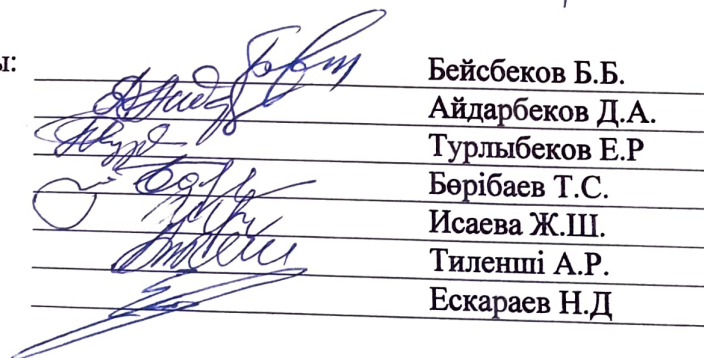 ы:
Бейсбеков Б.Б.
Айдарбеков Д.А.
Турлыбеков Е.Р
Бөрібаев Т.С.
Исаева Ж.Ш.
Тиленші А.Р.
Ескараев Н.Д